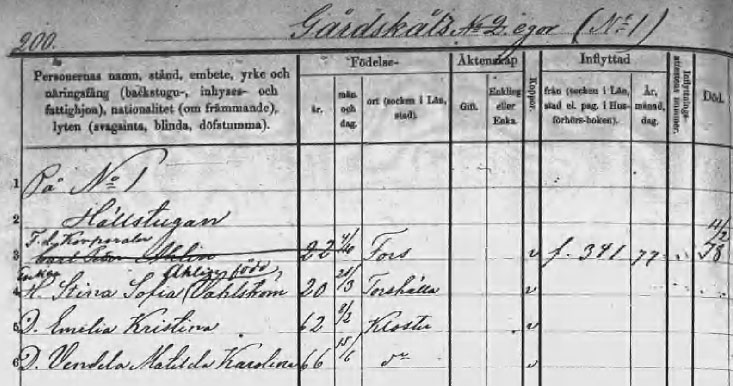 200.
Gårdskäls No 2. egor (No 1)
Personernas namn, stånd, embete, yrke och näringsfång (backstugu-, inhyses- och fattighjon), nationalitet (om främmande), lyten (svagsinta, blinda, döfstumma).
Födelse-
år.
mån. och dag.
ort (socken i Län, stad).
Äktenskap
Gift.
Enkling eller Enka.
Koppor.
Inflyttad
från (socken i Län, stad el. pag. i Husförhörs-boken).
År, månad, dag.
Död.
1 På No 1
2 Hällstugan
3 F.d. Korporalen Ahlin 22 4/10 Fors v f. 341 77 11/2 78
4 Enkan H. Stina Sofia Ahlin, född Vahlström 20 20/3 Torshälla v
5 D. Emilia Kristina 62 9/2 Kloster v
6 D. Vendela Matilda Karolina 66 15/6 do v